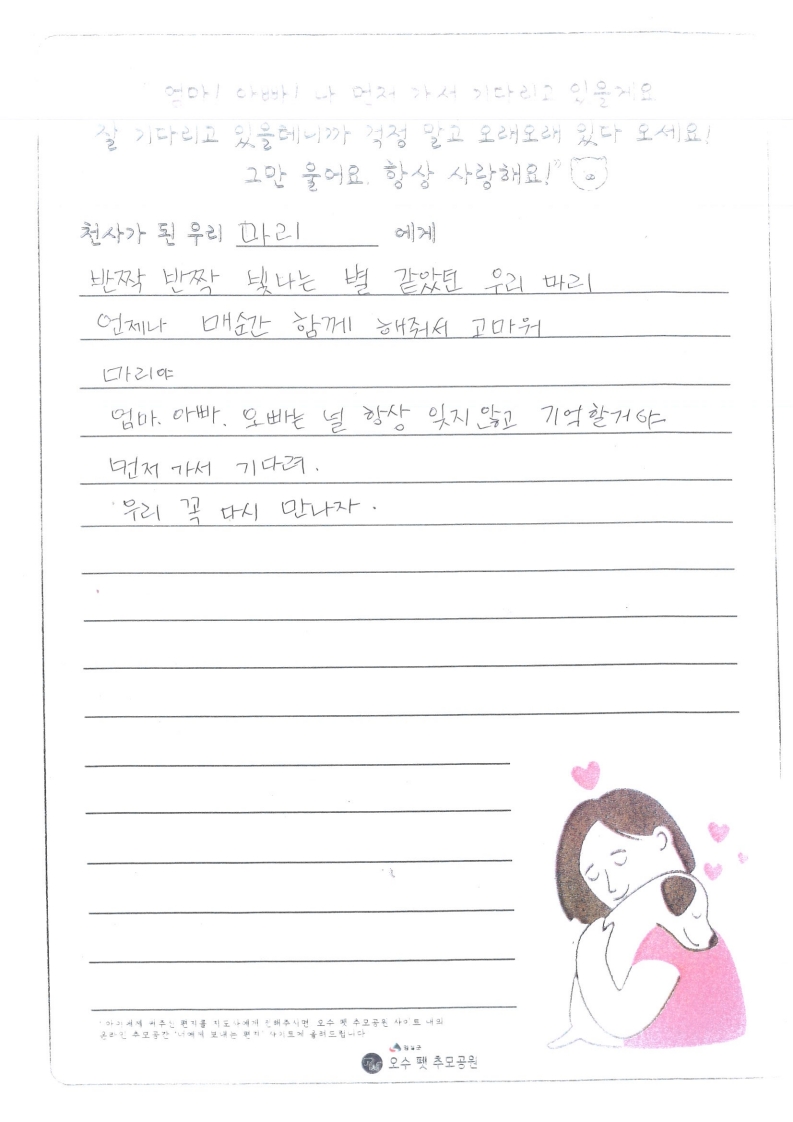 엄마! 아빠! 나 먼저 가서 기다리고 있을게요
잘 기다리고 있을테니까 걱정 말고 오래오래 있다 오세요!
그만 울어요. 항상 사랑해요!"
천사가 된 우리 마리 에게
반짝 반짝 빛나는 별 같았던 우리 마리
언제나 매순간 함께 해줘서 고마워
마리야
엄마. 아빠. 오빠는 널 항상 잊지 않고 기억할거야
먼저 가서 기다려.
우리 꼭 다시 만나자.
쓰주는 편지를 지도사에게 전해주시면 오수 펫 추모공원 사이트 내의
온라인 추모공간 보내는 편지 올려드립니다
임실군
오수 펫 추모공원